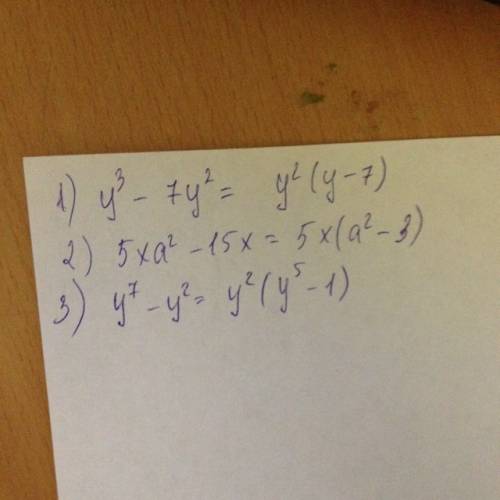 1) y³ - 7y² = y²(y-7)
2) 5xa² - 15x = 5x(a² - 3)
3) y⁷ - y² = y²(y⁵ - 1)